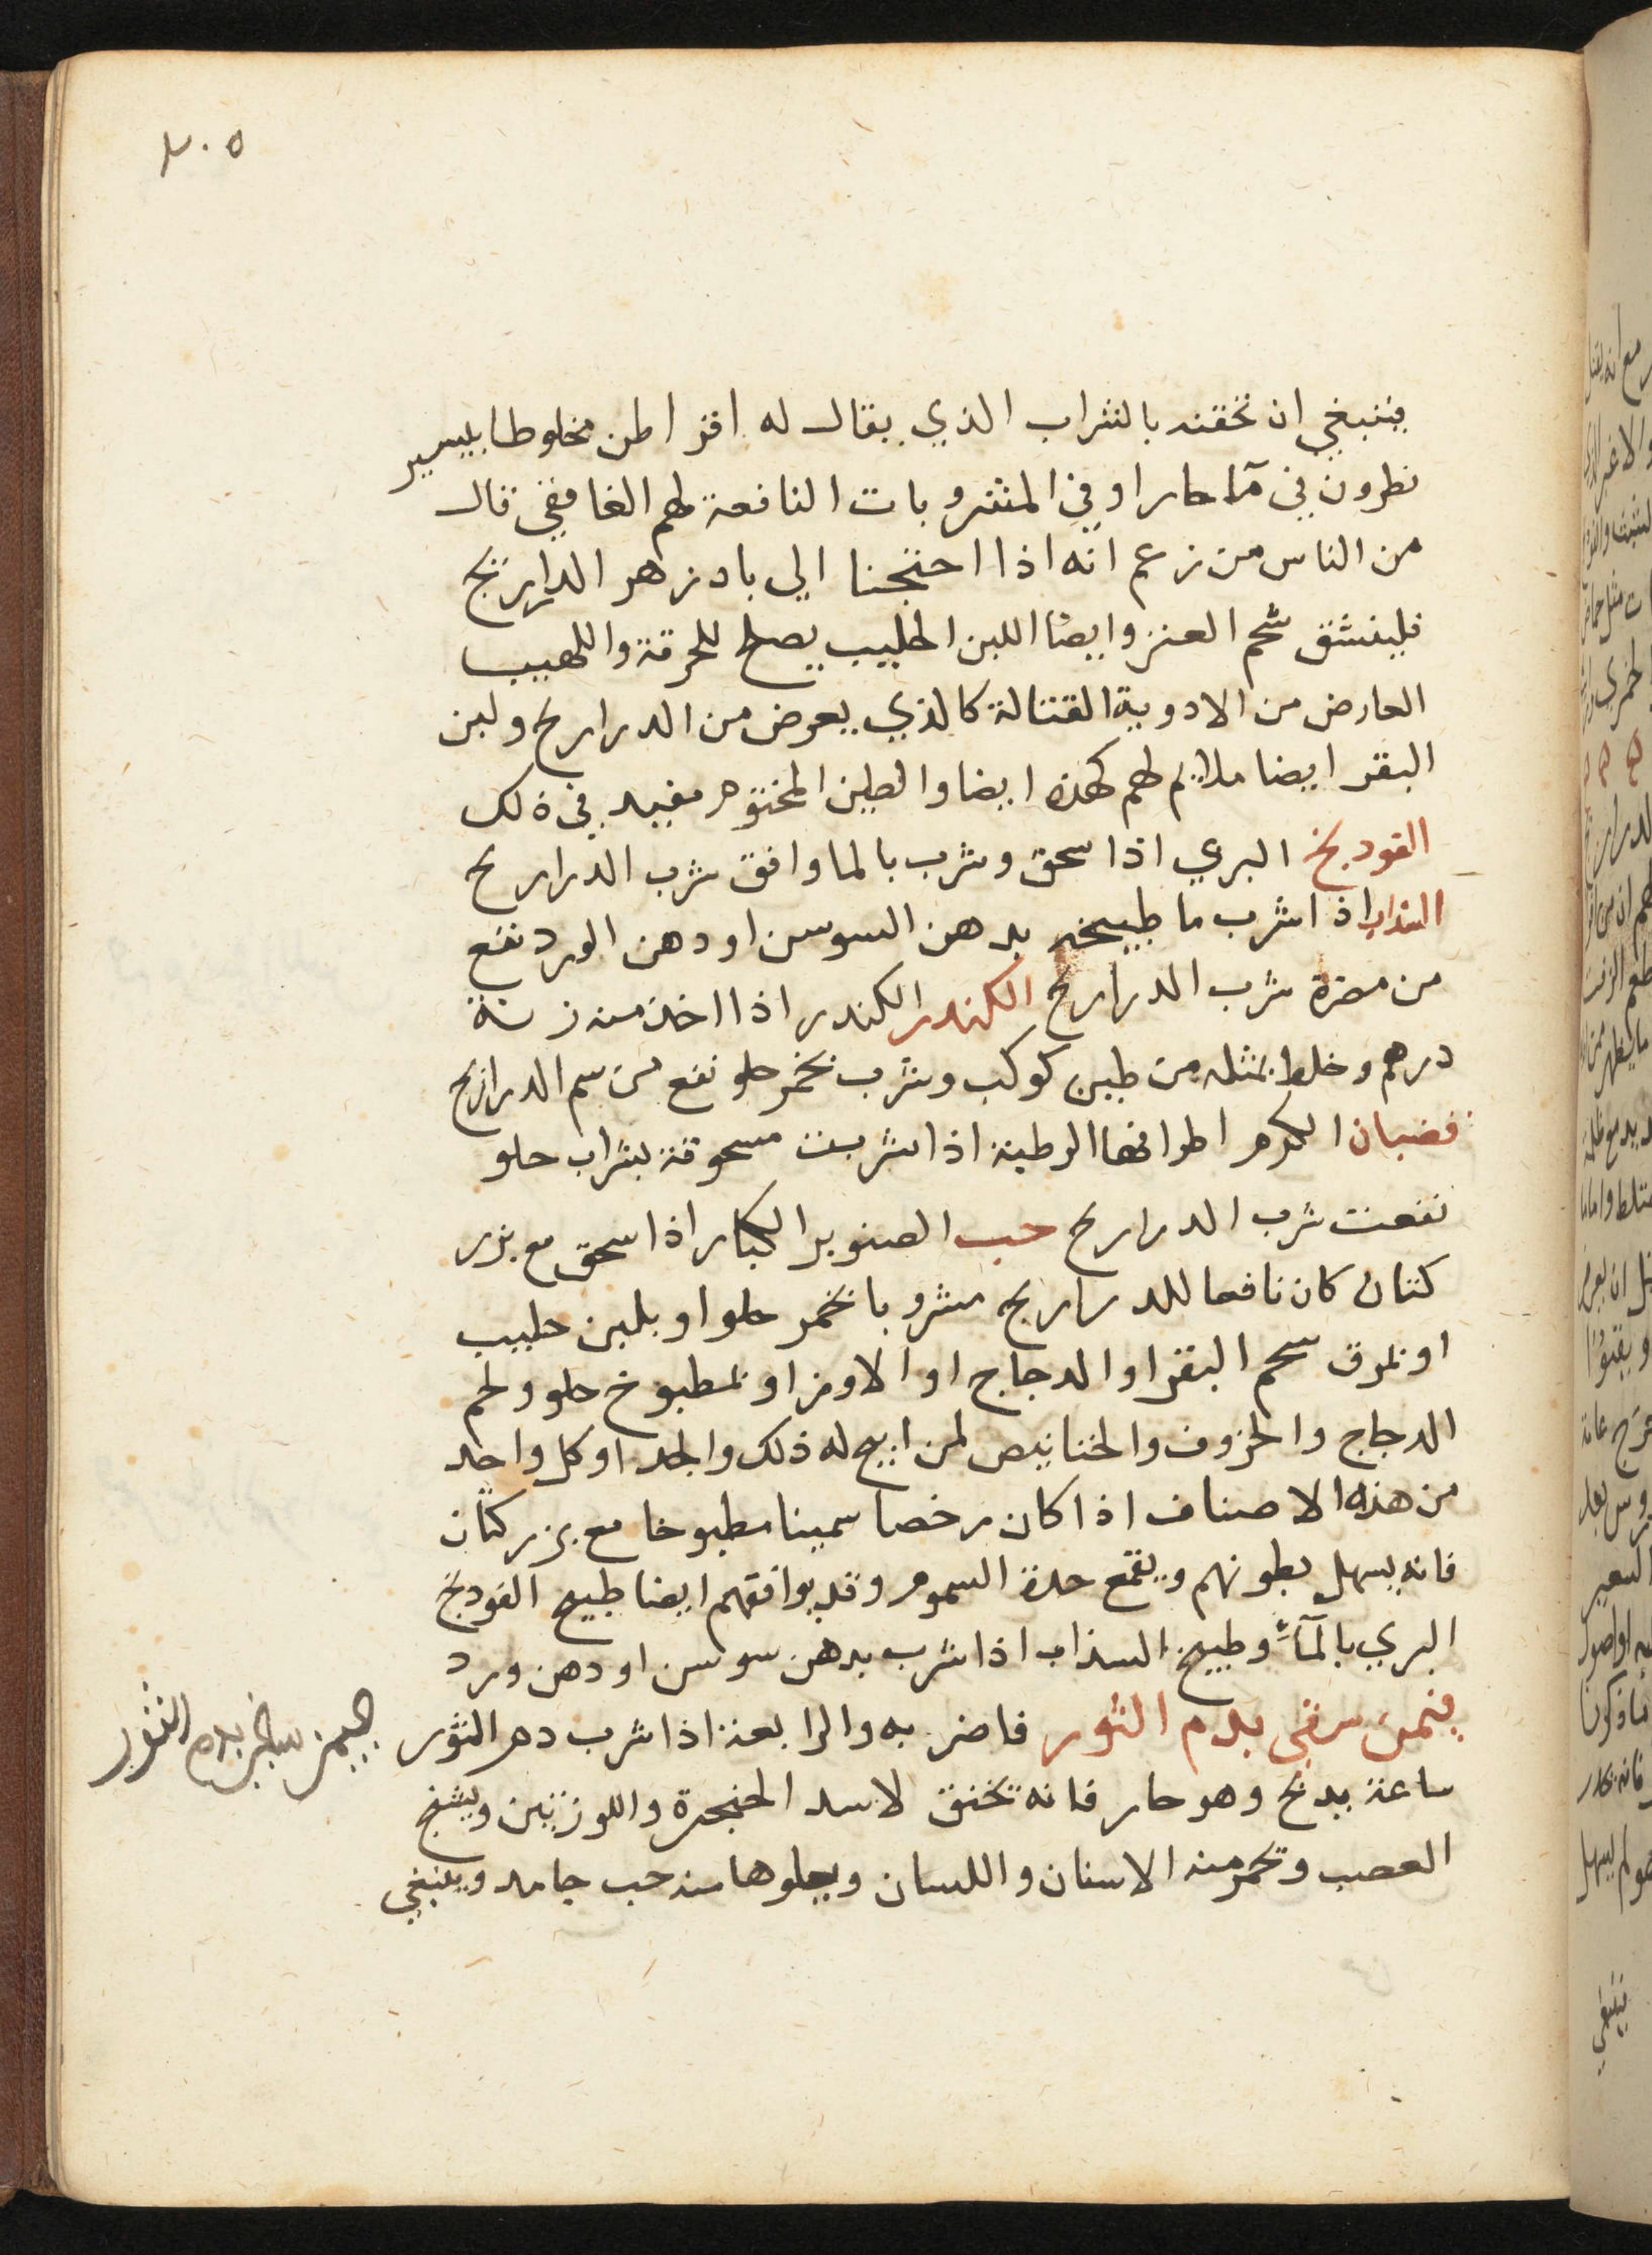 ٢٠٥
فينبغي ان تحقنه بالشراب الذي يقال له اقراطن مخلوطا بيسير
نطرون في مآ حار او في المشروبات النافعة لهم الغافقي قال
من الناس من زعم انه اذا احتجنا الي بادزهر الدراريح
فلينشق شحم العنز وايضا اللبن الحليب يصلح للحرقة واللهيب
العارض من الادوية القتالة كالذي يعرض من الدراريح ولبن
البقر ايضا ملائم لهم كهذه ايضا والطين المختوم مفيد في ذلك
الفودنج البري اذا سحق وشرب بالما وافق شرب الدراريح
السداب اذا شرب ما طبيخه بدهن السوسن او دهن الورد نفع
من مضرة شرب الدراريح الكندر الكندر اذا اخذ منه زنة
درهم وخلط بمثله من طين كوكب وشرب بخمر حلو نفع من سم الدراريح
قضبان الكرم اطرافها الرطبة اذا شربت مسحوقة بشراب حلو
نفعت شرب الدراريح حب الصنوبر الكبار اذا سحق مع بزر
كتان كان نافعا للدراريح مشروبا بخمر حلو او بلبن حليب
او بمرق شحم البقر او الدجاج او الاوز او بمطبوخ حلو ولحم
الدجاج والخروف والخنانيص لمن ابيح له ذلك والجد او كل واحد
من هذه الاصناف اذا كان رخصا سمينا مطبوخا مع بزر كتان
فانه يسهل بطونهم ويقمع حدة السموم وقد يوافقهم ايضا طبيخ الفودنج
البري بالمآء وطبيخ السذاب اذا شرب بدهن سوسن او دهن ورد
فيمن سقي بدم الثور فاضر به والرابعة اذا شرب دم الثور
ساعة يدبح وهو حار فانه تخنق لاسد الحنجرة واللوزتين ويشنج
العصب وتحمر منه الاسنان واللسان ويعلوها منه حب جامد وينبغي
فيمن سقي بدم الثور